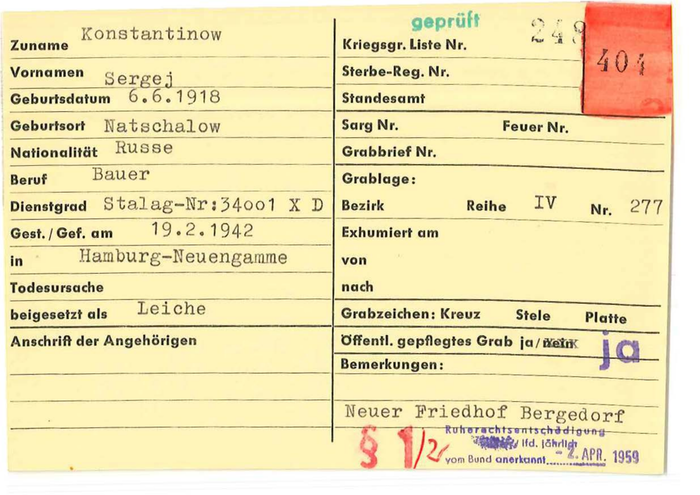 Zuname Konstantinow
Vornamen Sergej
Geburtsdatum 6.6.1918
Geburtsort Natschalow
Nationalität Russe
Beruf Bauer
Dienstgrad Stalag-Nr:34oo1 X D
Gest./Gef. am 19.2.1942
in Hamburg-Neuengamme
Todesursache
beigesetzt als Leiche
Anschrift der Angehörigen
geprüft
Kriegsgr. Liste Nr. 248
404
Sterbe-Reg. Nr.
Standesamt
Sarg Nr. Feuer Nr.
Grabbrief Nr.
Grablage:
Bezirk Reihe IV Nr. 277
Exhumiert am
von
nach
Grabzeichen: Kreuz Stele Platte
Öffentl. gepflegtes Grab ja/nein ja
Bemerkungen:
Neuer Friedhof Bergedorf
§ 1/2
Ruherechtsentschädigung
lfd. jährlich
vom Bund anerkannt APR. 1959